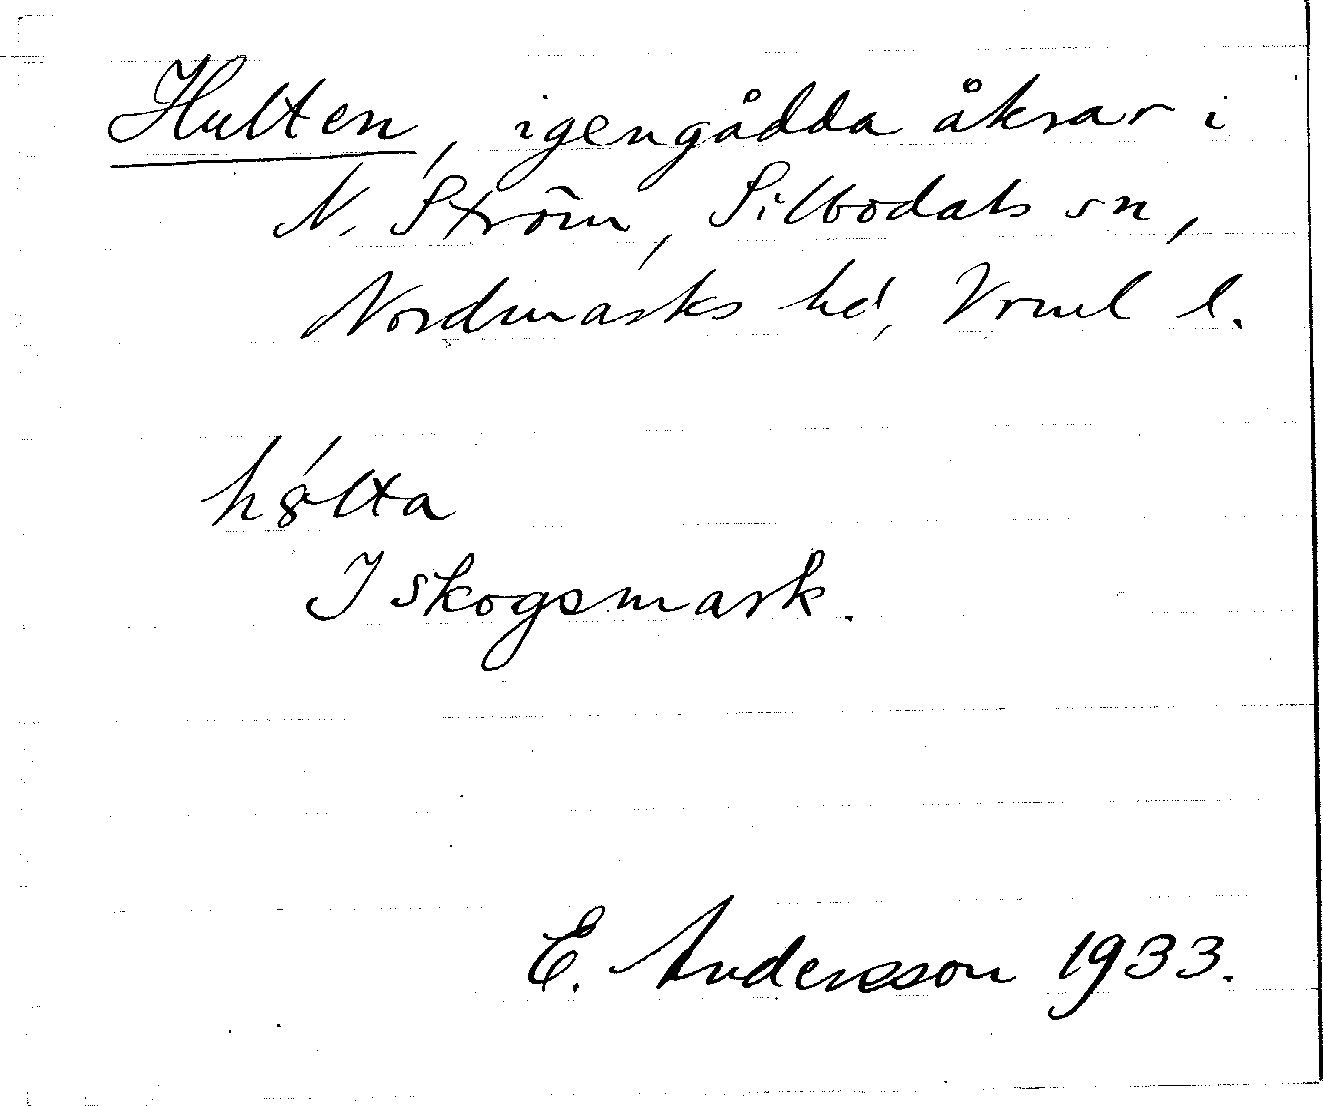 Hulten, igengådda åkrar i
N. Ström, Silbodals sn,
Nordmarks hd, Vrml l.
hölta
I skogsmark.
E. Andersson 1933.